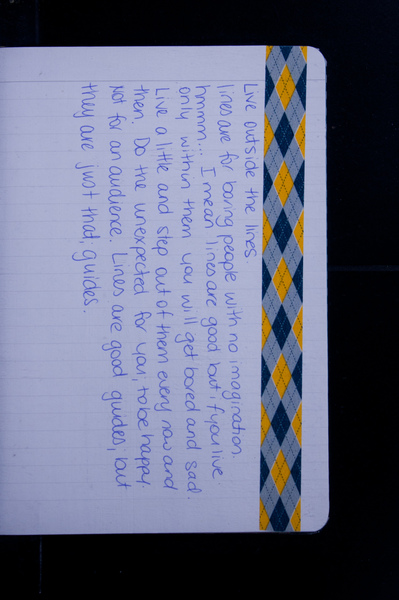 Live outside the lines.
lines are for boring people with no imagination.
hmmm... I mean lines are good but, if you live
only within them you will get bored and sad.
Live a little and step out of them every now and
then. Do the unexpected for you, to be happy.
Not for an audience. Lines are good guides; but
they are just that; guides.